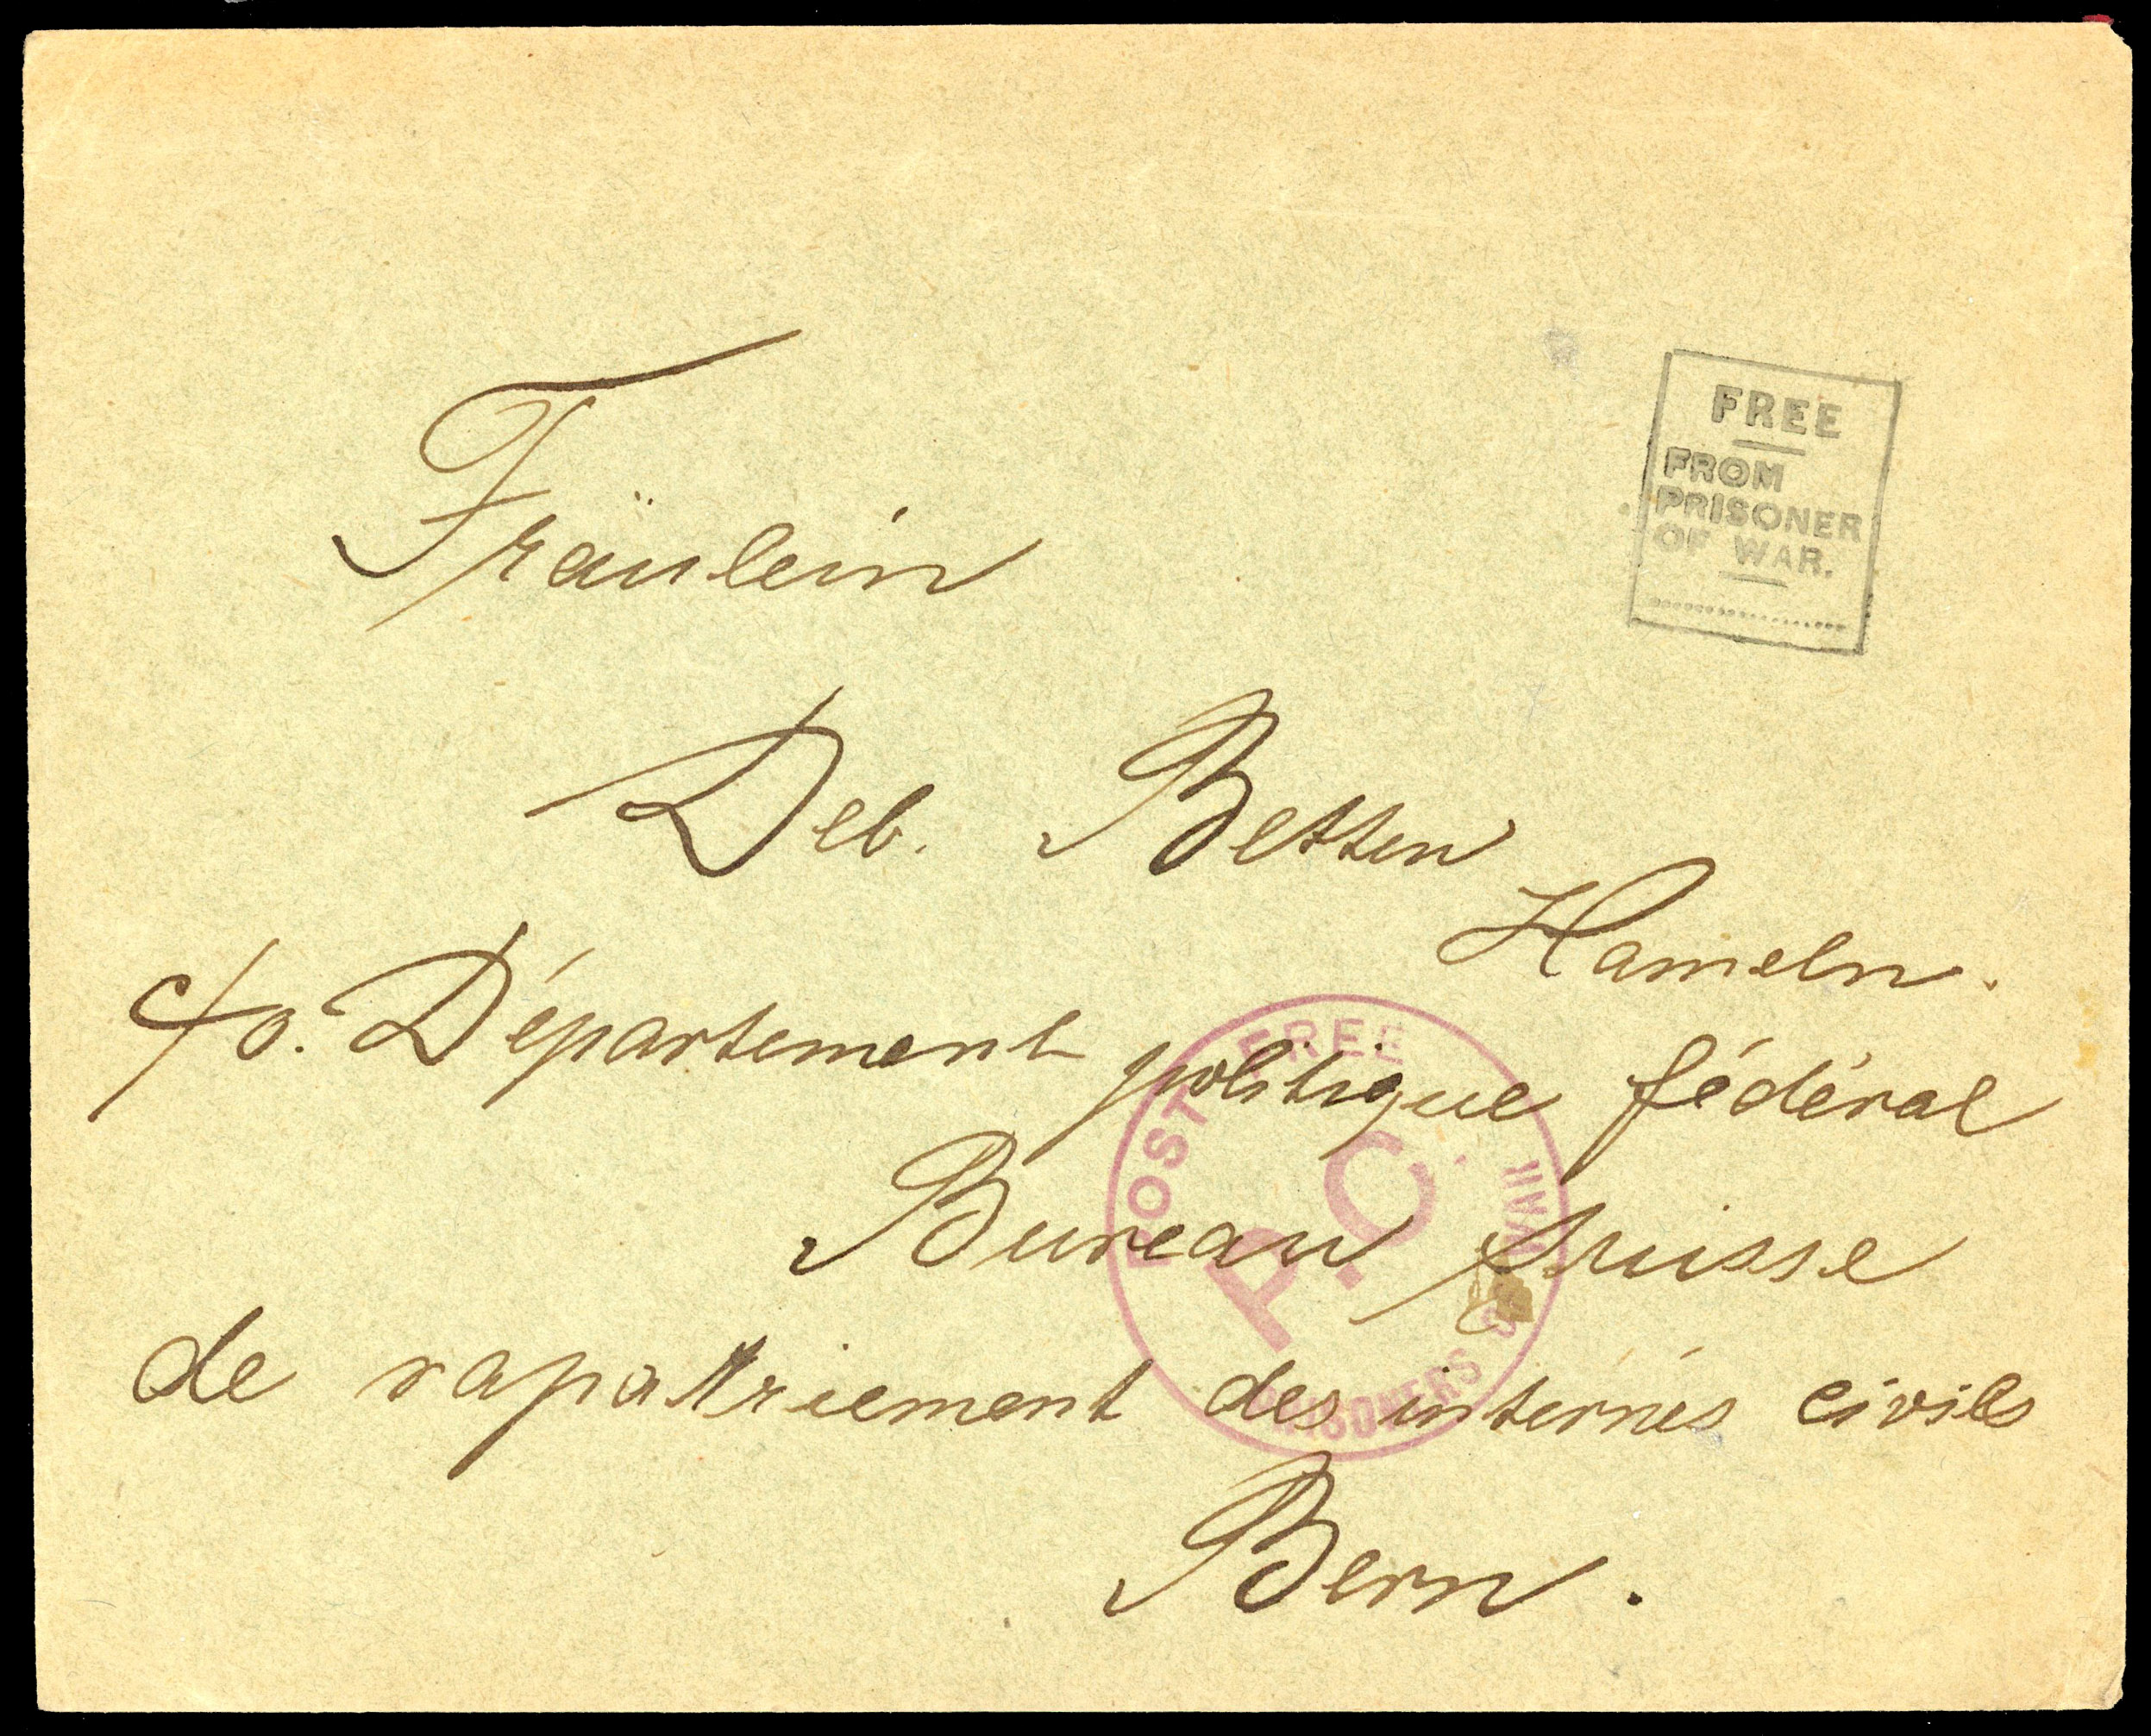 FREE
FROM
PRISONER
OF WAR.
Fräulein
Deb. Betten
Hameln.
c/o. Département politique fédéral
Bureau suisse
de rapatriement des internés civils
Bern.
POST FREE
P.C.
PRISONERS WAR